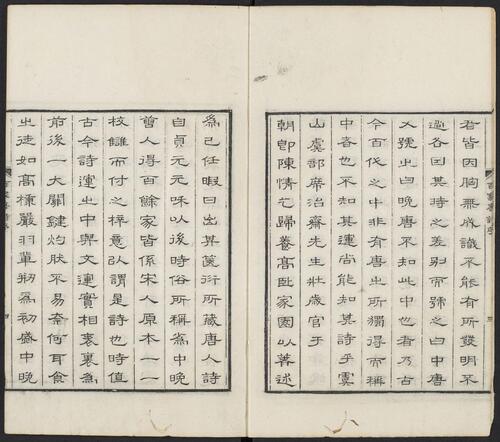 者皆因胸無成識不能有所發明不
過各因其時之差別而號之曰中唐
又號之曰晚唐不知此中也者乃古
今百代之中非有唐之所獨得而稱
中者也不知其運尚能知其詩乎虞
山虞部席治齋先生壯歲官于
朝即陳情乞歸養高臥家園以著述
為己任暇日出其篋衍所藏唐人詩
自貞元元和以後時俗所稱為中晚
唐人得百餘家皆係宋人原本一一
校讎而付之梓意以謂是詩也時值
古今詩運之中與文運實相表裏為
前後一大關鍵灼然不易奈何耳食
之徒如高棅嚴羽輩剏為初盛中晚